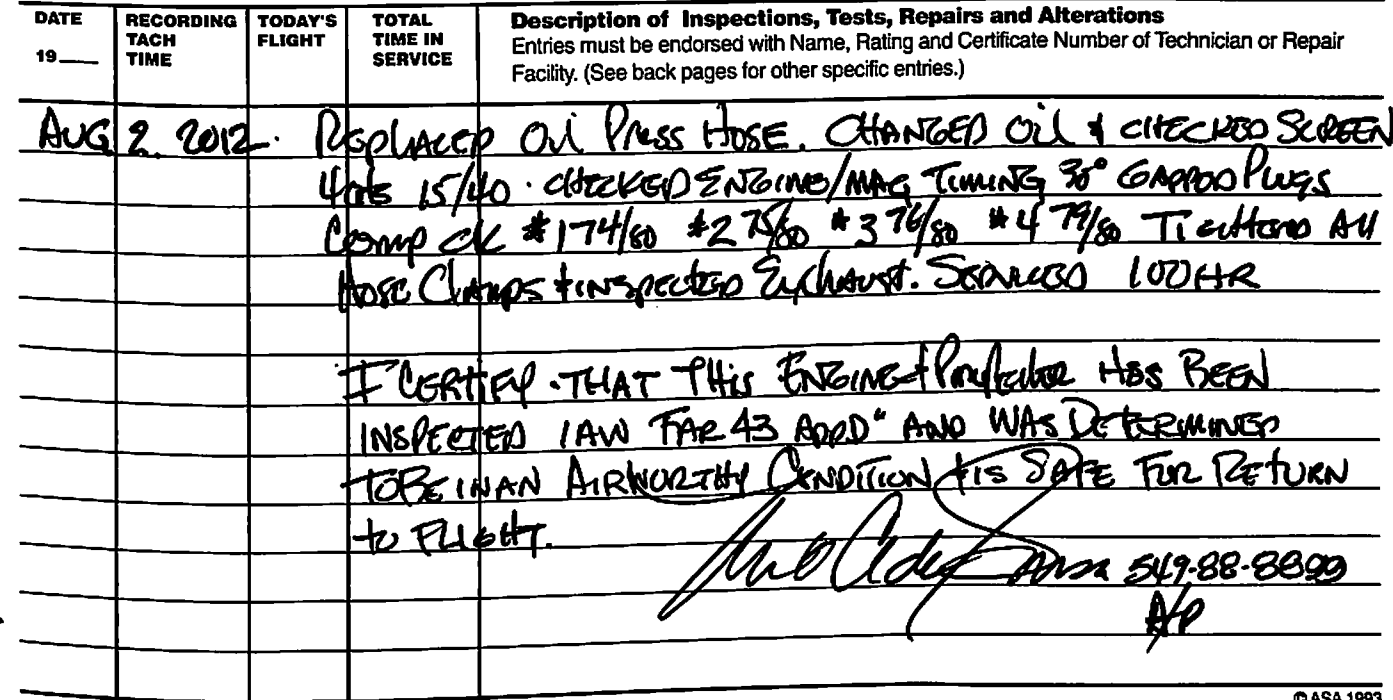 DATE
19___
RECORDING
TACH
TIME
TODAY'S
FLIGHT
TOTAL
TIME IN
SERVICE
Description of Inspections, Tests, Repairs and Alterations
Entries must be endorsed with Name, Rating and Certificate Number of Technician or Repair
Facility. (See back pages for other specific entries.)
AUG 2. 2012. REPLACED OIL PRESS HOSE. CHANGED OIL & CHECKED SCREEN
4qts 15/40. CHECKED ENGINE/MAG TIMING 30° GAPPED PLUGS
COMP CK #1 74/80 #2 75/80 #3 76/80 #4 79/80 TIGHTEND All
HOSE CLAMPS & INSPECTED EXHAUST. SERVICED 100HR
I CERTIFY THAT THIS ENGINE & HAS BEEN
INSPECTED IAW FAR 43 APPD" AND WAS DETERMINED
TO BE IN AN AIRWORTHY CONDITION & IS SAFE FUR RETURN
to FLIGHT.
549-88-8899
A/P
© ASA 1993